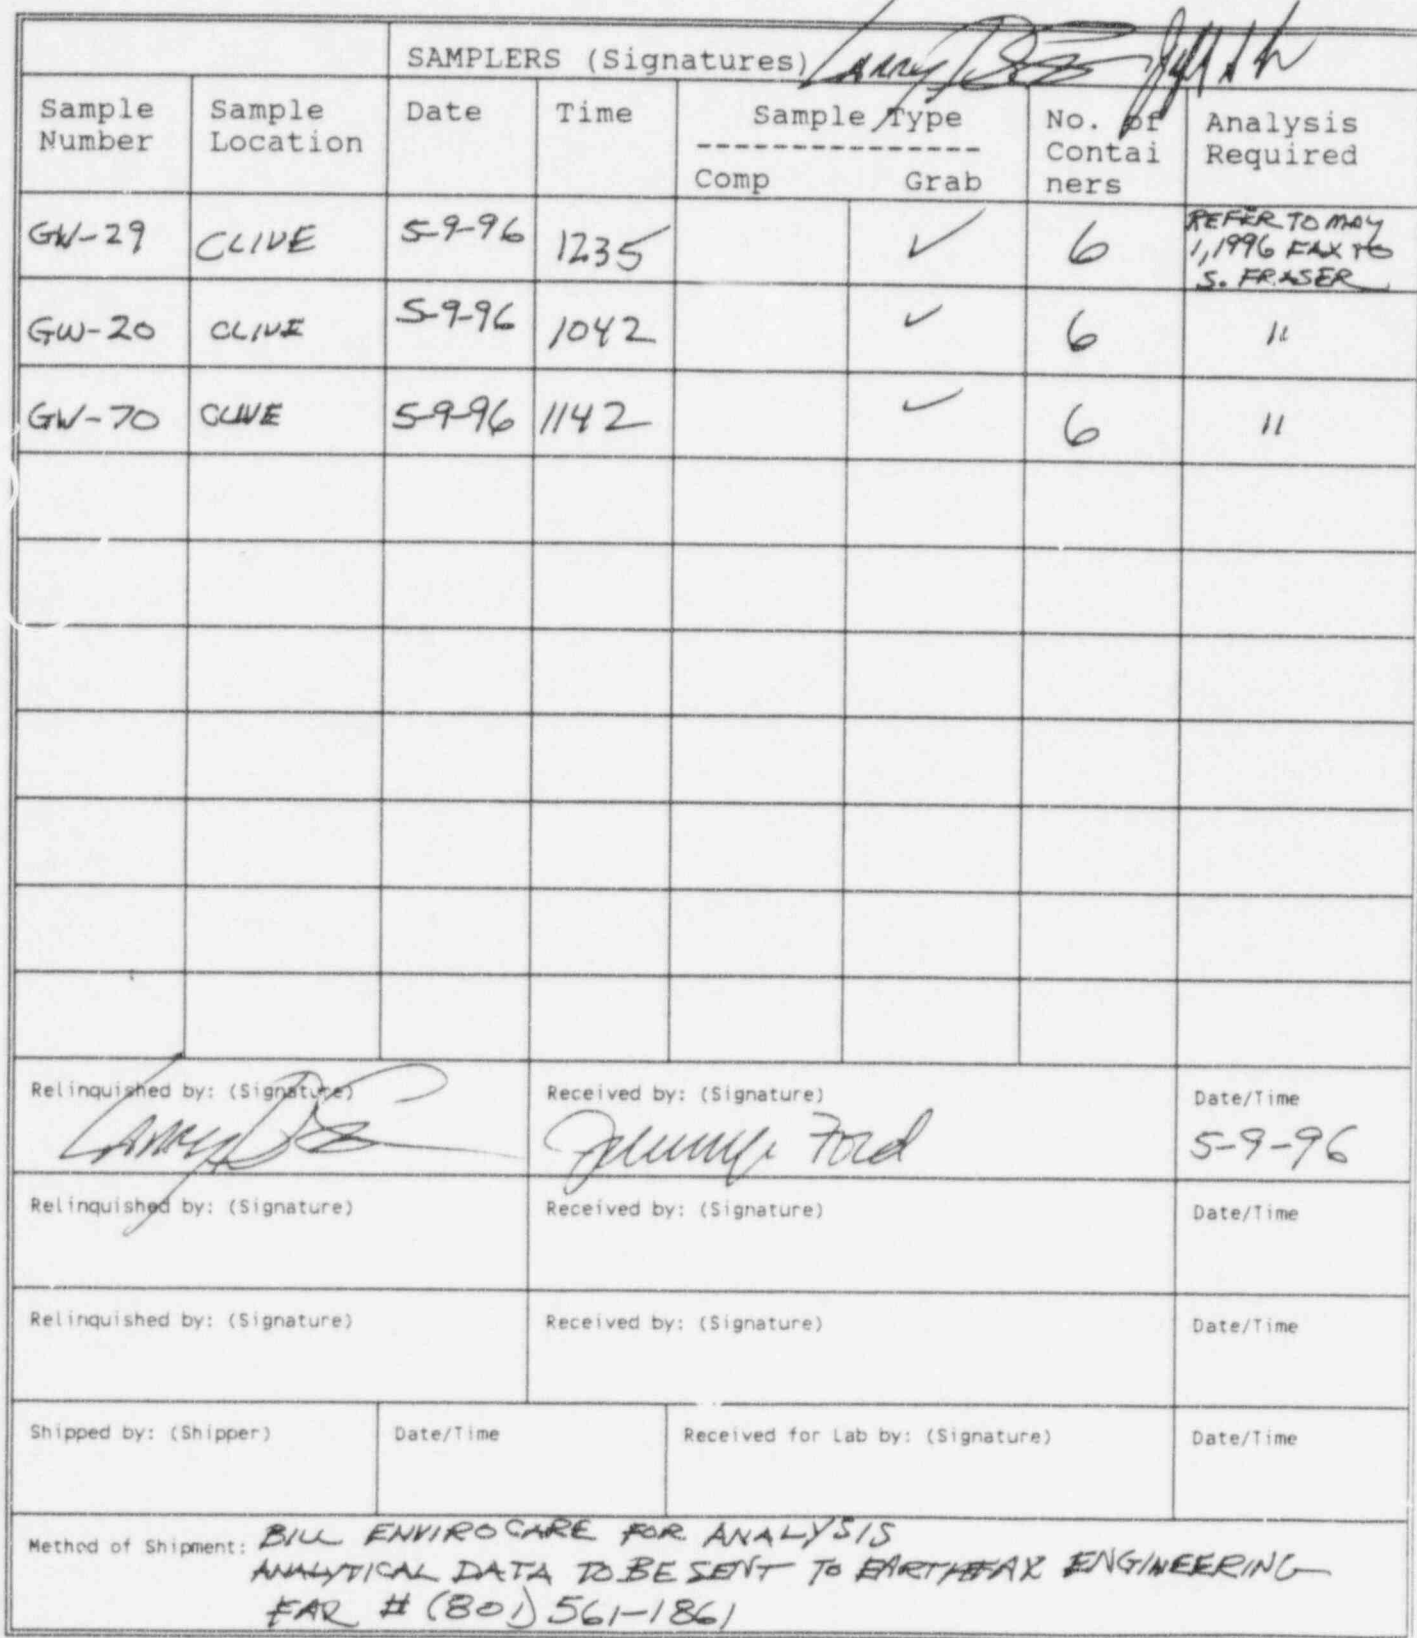 SAMPLERS (Signatures) Larry
Sample Number Sample Location Date Time Sample Type No. of Contai ners Analysis Required
Comp Grab
GW-29 CLIVE 5-9-96 1235 ✓ 6 REFER TO MAY 1, 1996 FAX TO S. FRASER
GW-20 CLIVE 5-9-96 1042 ✓ 6 "
GW-70 CLIVE 5-9-96 1142 ✓ 6 "
Relinquished by: (Signature) Received by: (Signature) Date/Time
Larry Ford 5-9-96
Relinquished by: (Signature) Received by: (Signature) Date/Time
Relinquished by: (Signature) Received by: (Signature) Date/Time
Shipped by: (Shipper) Date/Time Received for Lab by: (Signature) Date/Time
Method of Shipment: BILL ENVIROCARE FOR ANALYSIS
ANALYTICAL DATA TO BE SENT TO EARTHFAX ENGINEERING
FAR # (801) 561-1861